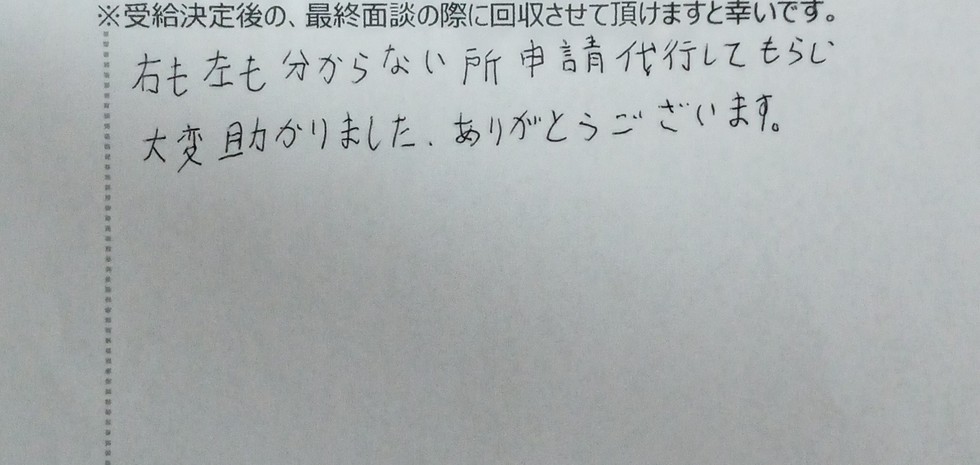 ※受給決定後の、最終面談の際に回収させて頂けますと幸いです。
右も左も分からない所申請代行してもらい
大変助かりました、ありがとうございます。